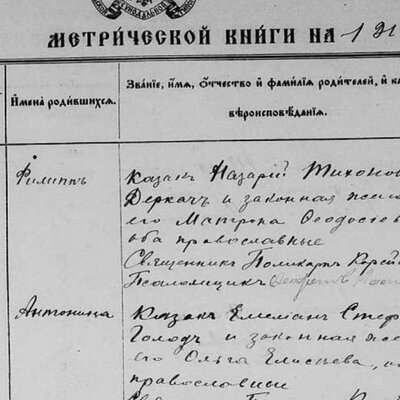 МЕТРИ́ЧЕСКОЙ КНИ́ГИ НА 191
И҆мена̀ роди́вшихсѧ.
Зва́нїе, и҆́мѧ, ѻ҆́тчество и҆ фами́лїѧ роди́телей, и҆ ка
вѣроисповѣ́данїѧ.
Филиппъ
Казакъ Назарій Тихонов
Деркачъ и законная жена
его Матрона Ѳеодосіев
оба православные
Священникъ Поликарпъ
Псаломщикъ
Антонина
Казакъ Емеліан Стеф
Голодъ и законная же
его Ольга Елисѣева, о
православные